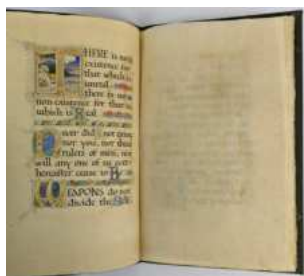 THERE is no
existence for
that which is
unreal
there is no
non-existence for that
which is Real
Never did I not
nor you, nor these
rulers of men, nor
will any one of us
hereafter cease to Be
WEAPONS do not
divide the Self